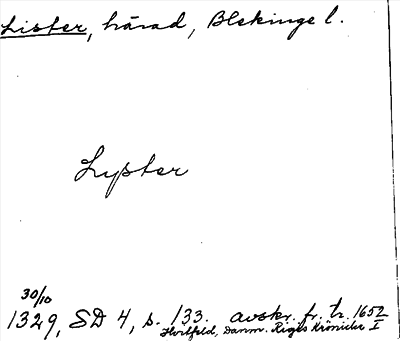 Lister, härad, Blekinge l.
Lyster
30/10
1329, SD 4, s. 133. avskr. fr. tr. 1652
Hvitfeld, Danm. Rigis Krönicke I